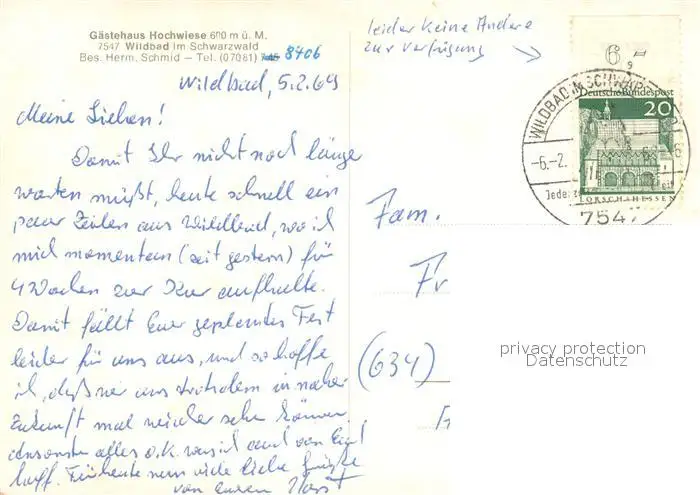 Gästehaus Hochwiese 600 m ü. M.
7547 Wildbad im Schwarzwald
Bes. Herm. Schmid — Tel. (07081) 8406
Wildbad, 5.2.69
Meine Lieben!
Damit Ihr nicht noch länge
warten müßt, heute schnell ein
paar Zeilen aus Wildbad, wo ich
mich momentan (seit gestern) für
4 Wochen zur Kur aufhalte.
Damit fällt Euer geplantes Fest
leider für uns aus, und so hoffe
ich, daß wir uns trotzdem in naher
Zukunft mal wieder sehen können
ansonsten alles o.k. was ich auch von Euch
hoffe. Für heute nun viele liebe Grüße
von Eurem Horst
leider keine Andere
zur Verfügung
6
9
WILDBAD I. SCHWARZW
-6.-2.
7547
Deutsche Bundespost
20
LORSCH-HESSEN
Fam.
Fr
(634)
privacy protection
Datenschutz